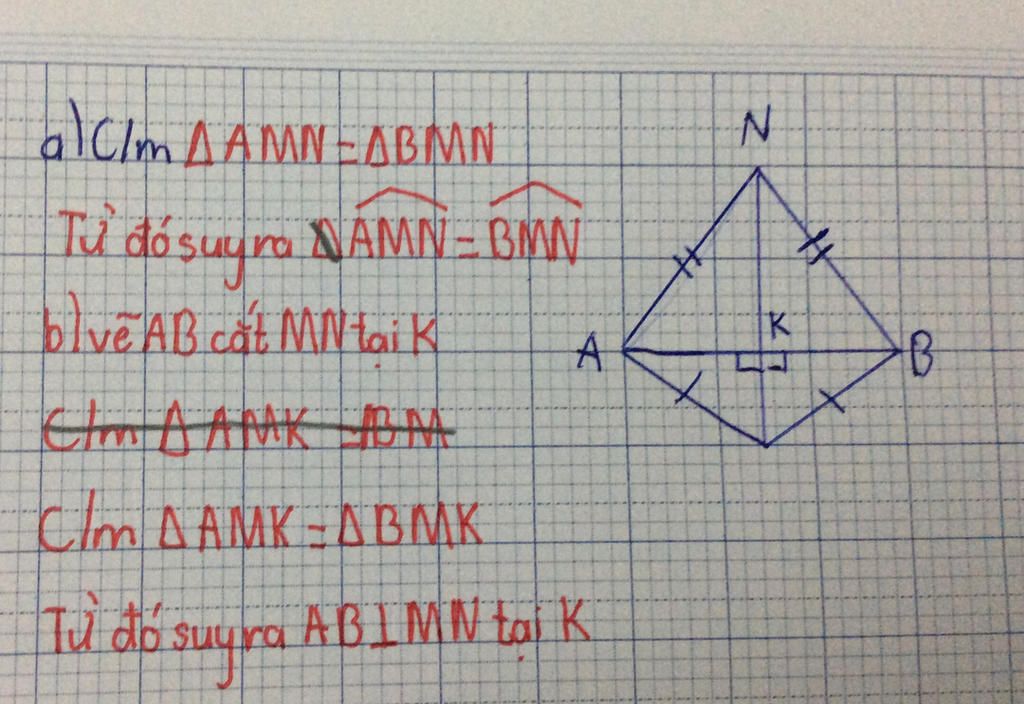 a) C/m Δ AMN = ΔBMN
Từ đó suy ra AMN = BMN
b) vẽ AB cắt MN tại K
C/m Δ AMK = ΔBM
C/m Δ AMK = Δ BMK
Từ đó suy ra AB ⊥ MN tại K
N
K
A
B